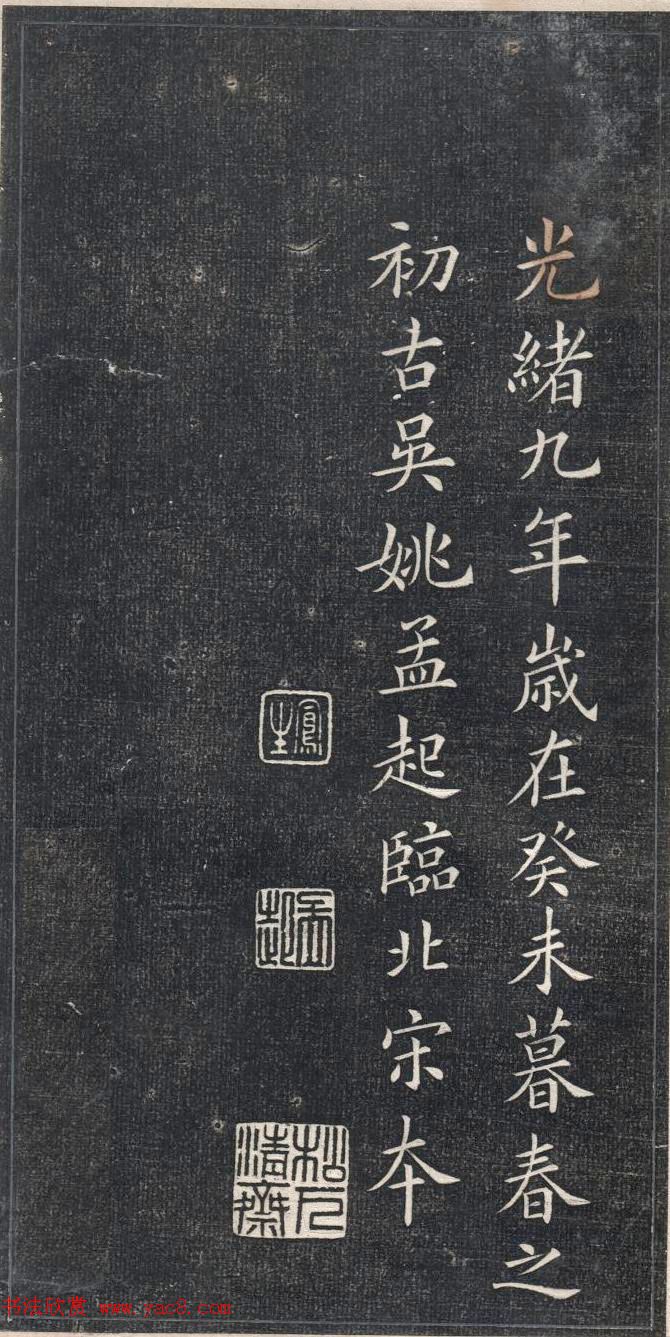 光緒九年歲在癸未暮春之
初古吳姚孟起臨北宋本
鳳生
孟起
松下清齋
书法欣赏 www.yac8.com